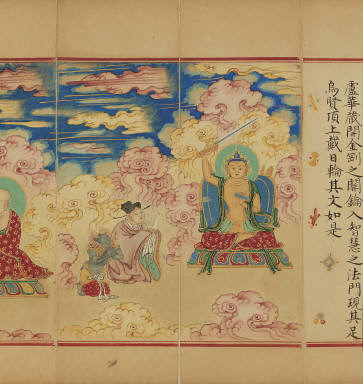 盧華藏開金剛之關鑰 智慧之法門現其足
烏瑟頂上戴日輪其文如是